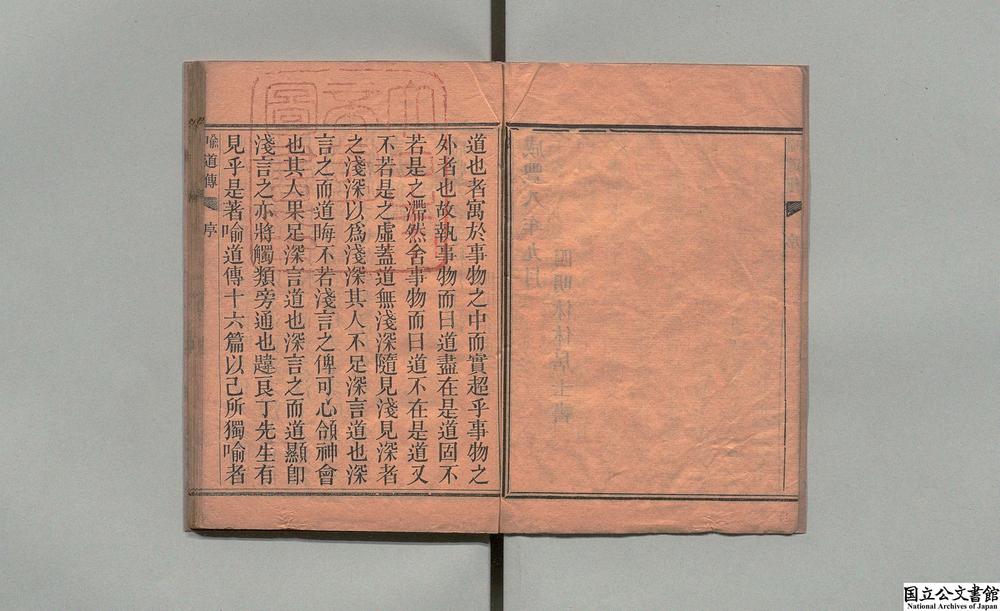 道也者寓於事物之中而實超乎事物之
外者也故執事物而曰道盡在是道固不
若是之滯然舍事物而曰道不在是道又
不若是之虛蓋道無淺深隨見淺見深者
之淺深以爲淺深其人不足深言道也深
言之而道晦不若淺言之俾可心領神會
也其人果足深言道也深言之而道顯卽
淺言之亦將觸類旁通也韙良丁先生有
見乎是著喻道傳十六篇以己所獨喻者
喻道傳 序
国立公文書館
National Archives of Japan